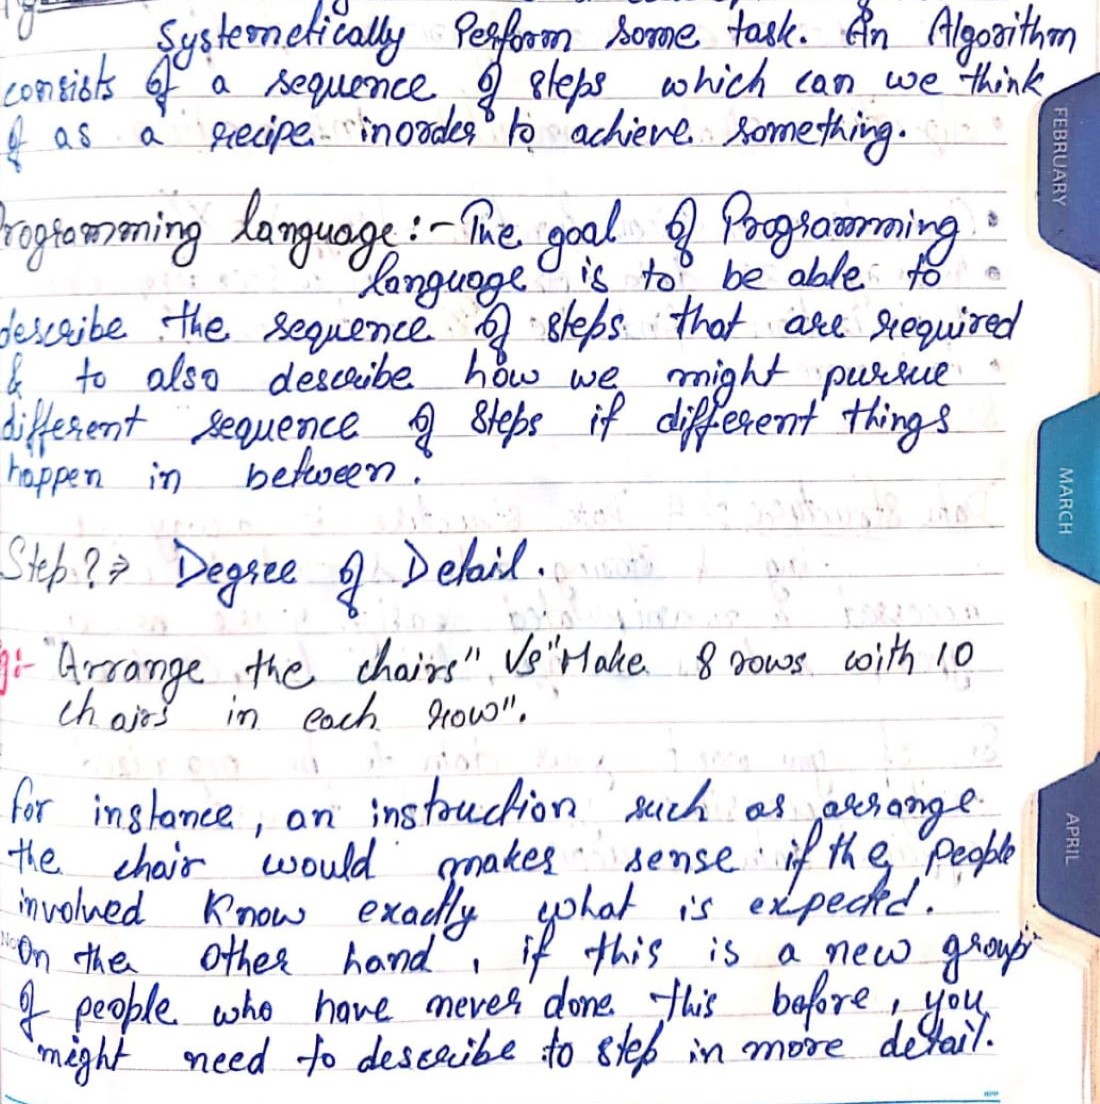 Systemetically Perform some task. An Algorithm
consists of a sequence of steps which can we think
of as a recipe inorder to achieve something.
Programming language :- The goal of Programming
language is to be able to
describe the sequence of steps that are required
& to also describe how we might pursue
different sequence of steps if different things
happen in between.
Step? ⇒ Degree of Detail.
g:- "Arrange the chairs" Vs "Make 8 rows with 10
chairs in each row".
for instance, an instruction such as arrange
the chair would makes sense if the people
involved know exactly what is expected.
On the other hand, if this is a new group
of people who have never done this before, you
might need to describe to step in more detail.
FEBRUARY
MARCH
APRIL